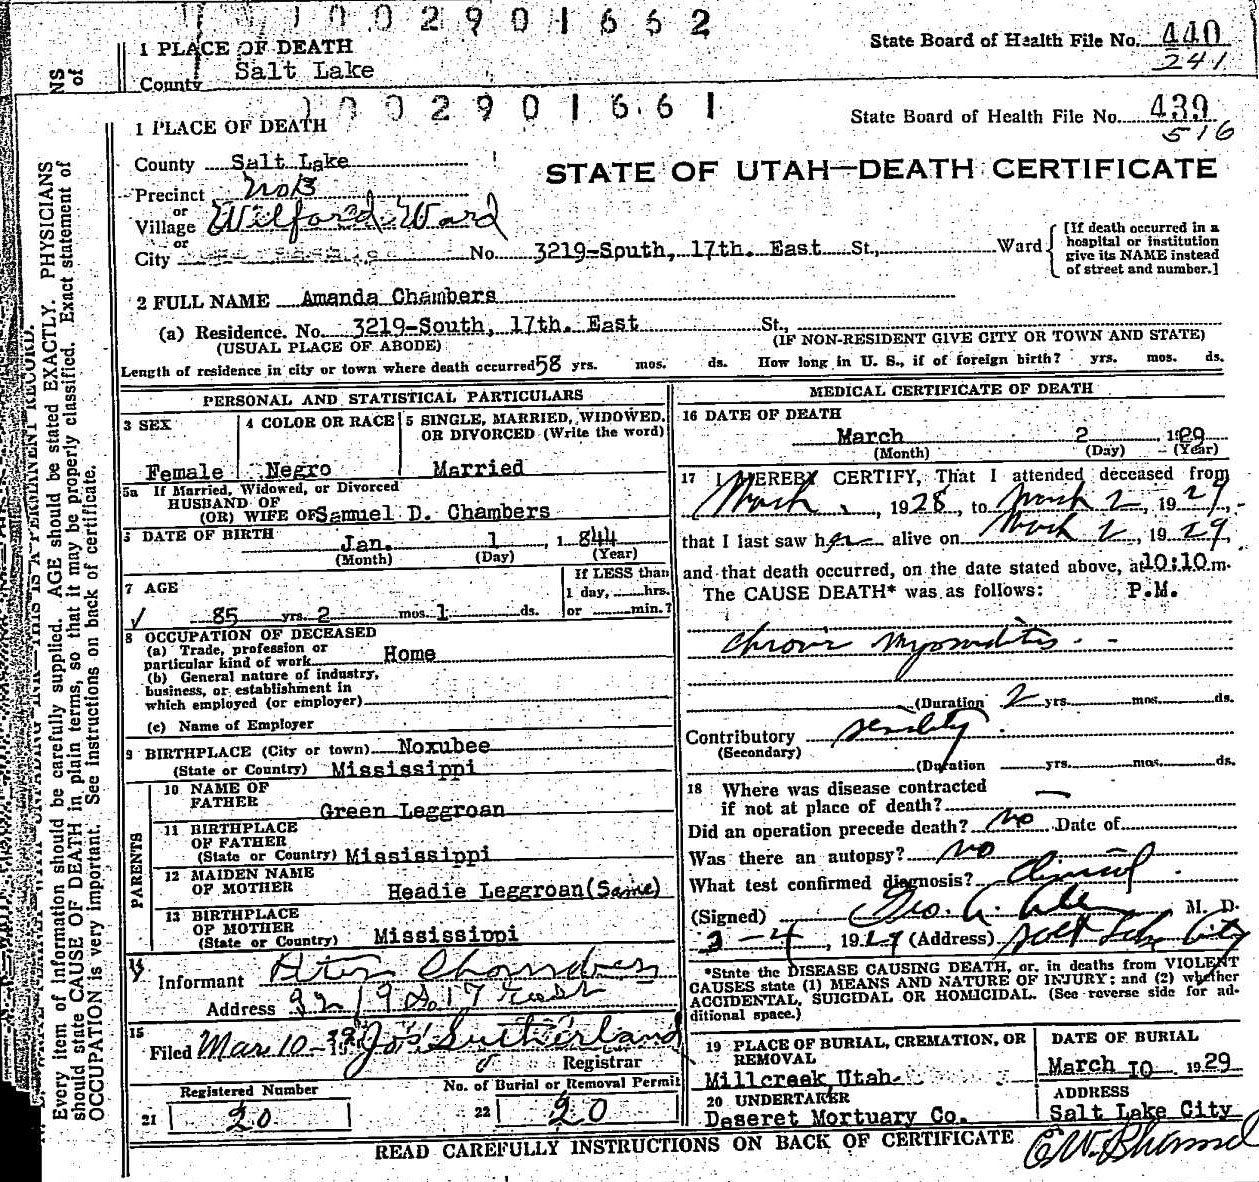 1002901662
1 PLACE OF DEATH
State Board of Health File No. 440
241
County Salt Lake
1002901661
1 PLACE OF DEATH
State Board of Health File No. 439
516
County Salt Lake
STATE OF UTAH—DEATH CERTIFICATE
Precinct
or
Village Wilford Ward
or
City No. 3219-South, 17th. East St., Ward
[If death occurred in a
hospital or institution
give its NAME instead
of street and number.]
2 FULL NAME Amanda Chambers
(a) Residence. No. 3219-South, 17th. East St.,
(USUAL PLACE OF ABODE)
(IF NON-RESIDENT GIVE CITY OR TOWN AND STATE)
Length of residence in city or town where death occurred 58 yrs. mos. ds. How long in U. S., if of foreign birth? yrs. mos. ds.
PERSONAL AND STATISTICAL PARTICULARS
3 SEX
Female
4 COLOR OR RACE
Negro
5 SINGLE, MARRIED, WIDOWED,
OR DIVORCED (Write the word)
Married
5a If Married, Widowed, or Divorced
HUSBAND OF
(OR) WIFE OF Samuel D. Chambers
DATE OF BIRTH
Jan. 1 , 1844
(Month) (Day) (Year)
7 AGE
85 yrs. 2 mos. 1 ds.
If LESS than
1 day, hrs.
or min.?
8 OCCUPATION OF DECEASED
(a) Trade, profession or
particular kind of work Home
(b) General nature of industry,
business, or establishment in
which employed (or employer)
(c) Name of Employer
9 BIRTHPLACE (City or town) Noxubee
(State or Country) Mississippi
PARENTS
10 NAME OF
FATHER
Green Leggroan
11 BIRTHPLACE
OF FATHER
(State or Country) Mississippi
12 MAIDEN NAME
OF MOTHER Headie Leggroan(Same)
13 BIRTHPLACE
OF MOTHER
(State or Country) Mississippi
14
Informant Peter Chambers
Address 3219 So 17 East
15
Filed Mar 10-1929 Jos Sutherland
Registrar
Registered Number
21 20
No. of Burial or Removal Permit
22 20
MEDICAL CERTIFICATE OF DEATH
16 DATE OF DEATH
March 2 , 1929
(Month) (Day) (Year)
17 I HEREBY CERTIFY, That I attended deceased from
March , 1928, to March 2, 1929,
that I last saw her alive on March 2, 1929,
and that death occurred, on the date stated above, at 10:10 m.
The CAUSE DEATH* was as follows: P.M.
Chronic Myocarditis
(Duration 2 yrs. mos. ds.
Contributory senility
(Secondary)
(Duration yrs. mos. ds.
18 Where was disease contracted
if not at place of death?
Did an operation precede death? No Date of
Was there an autopsy? No
What test confirmed diagnosis? Clinical
(Signed) Geo. A. M. D.
3-4, 1929 (Address) Salt Lake City
*State the DISEASE CAUSING DEATH, or, in deaths from VIOLENT
CAUSES state (1) MEANS AND NATURE OF INJURY; and (2) whether
ACCIDENTAL, SUICIDAL OR HOMICIDAL. (See reverse side for ad-
ditional space.)
19 PLACE OF BURIAL, CREMATION, OR
REMOVAL
Millcreek, Utah
DATE OF BURIAL
March 10 1929
20 UNDERTAKER
Deseret Mortuary Co.
ADDRESS
Salt Lake City
READ CAREFULLY INSTRUCTIONS ON BACK OF CERTIFICATE
Every item of information should be carefully supplied. AGE should be stated EXACTLY. PHYSICIANS
should state CAUSE OF DEATH in plain terms, so that it may be properly classified. Exact statement of
OCCUPATION is very important. See instructions on back of certificate.